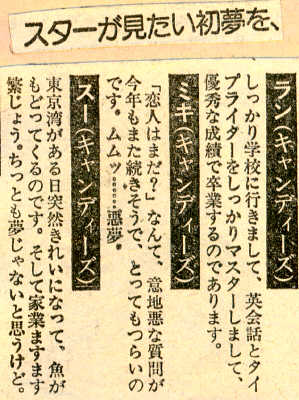 スターが見たい初夢を、
ラン(キャンディーズ)
しっかり学校に行きまして、英会話とタイ
プライターをしっかりマスターしまして、
優秀な成績で卒業するのであります。
ミキ(キャンディーズ)
「恋人はまだ?」なんて、意地悪な質問が
今年もまた続きそうで、とってもつらいの
です。ムムッ………悪夢。
スー(キャンディーズ)
東京湾がある日突然きれいになって、魚が
もどってくるのです。そして家業ますます
繁じょう。ちっとも夢じゃないと思うけど。